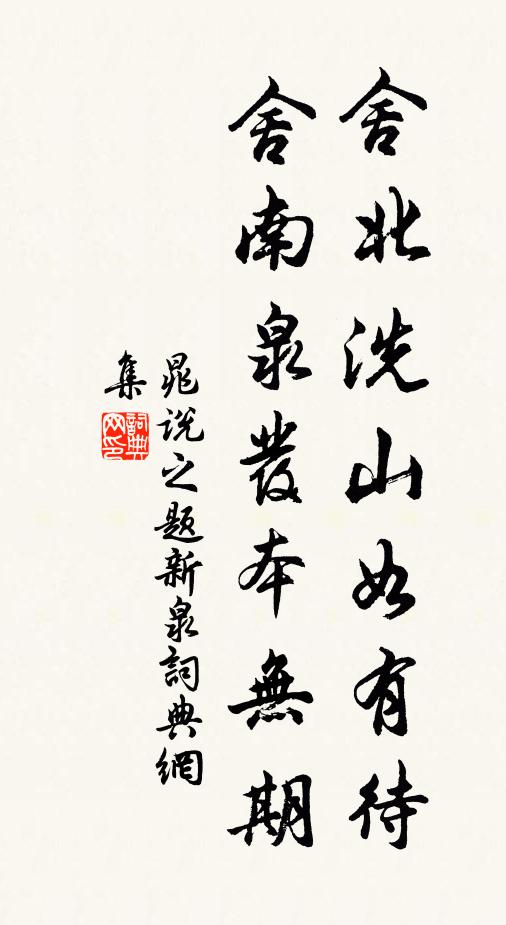 舍北洗山如有待
舍南泉發本無期
晁說之題新泉詞典網
集
詞典
网印